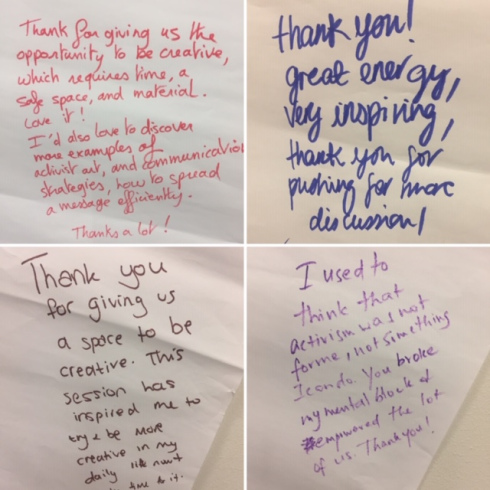 Thank for giving us the
opportunity to be creative,
which requires time, a
safe space, and material.
Love it!
I'd also love to discover
more examples of
activist art, and communication
strategies, how to spread
a message efficiently.
Thanks a lot!
thank you!
great energy,
very inspiring,
thank you for
pushing for more
discussion!
Thank you
for giving us
a space to be
creative. This
session has
inspired me to
try & be more
creative in my
daily life
time & it.
I used to
think that
activism was not
for me, not something
I can do. You broke
my mental block &
#empowered the lot
of us. Thank you!